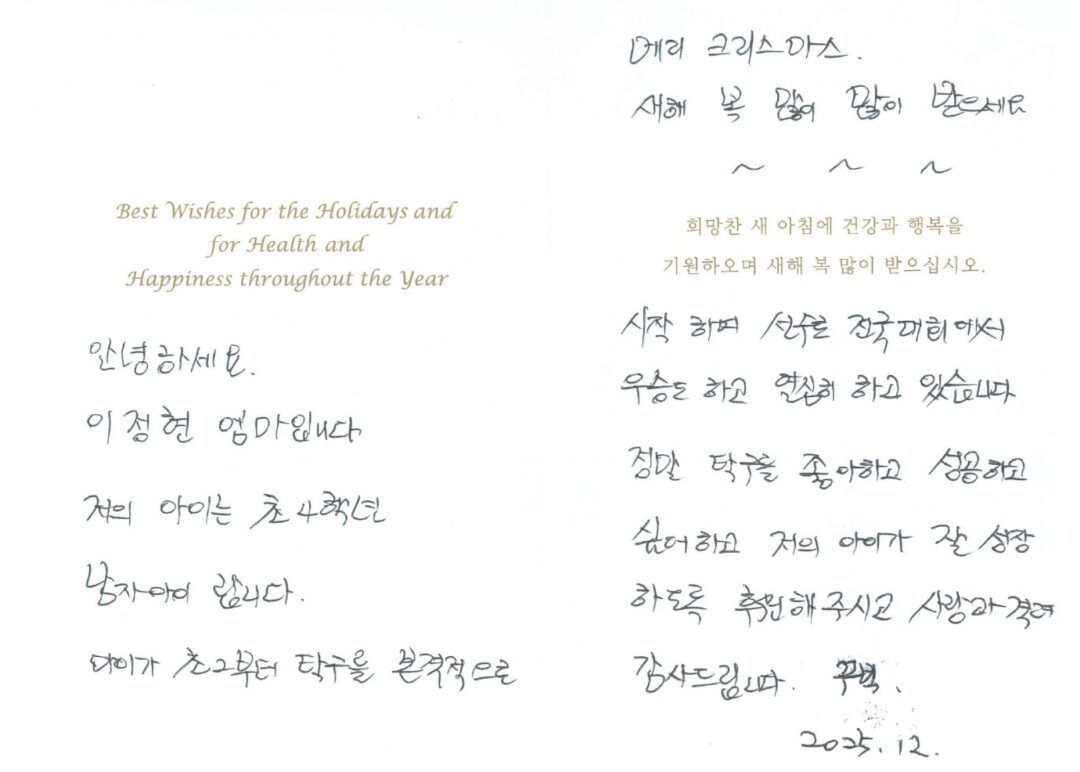 Best Wishes for the Holidays and
for Health and
Happiness throughout the Year
안녕하세요.
이정현 엄마입니다
저의 아이는 초4학년
남자아이 랍니다.
아이가 초2부터 탁구를 본격적으로
메리 크리스마스.
새해 복 많이 많이 받으세요
~ ~ ~
희망찬 새 아침에 건강과 행복을
기원하오며 새해 복 많이 받으십시오.
시작 하며 선수로 전국대회에서
우승도 하고 열심히 하고 있습니다
정말 탁구를 좋아하고 성공하고
싶어하고 저의 아이가 잘 성장
하도록 후원해주시고 사랑과 격려
감사드립니다. 꾸벅.
2025.12.